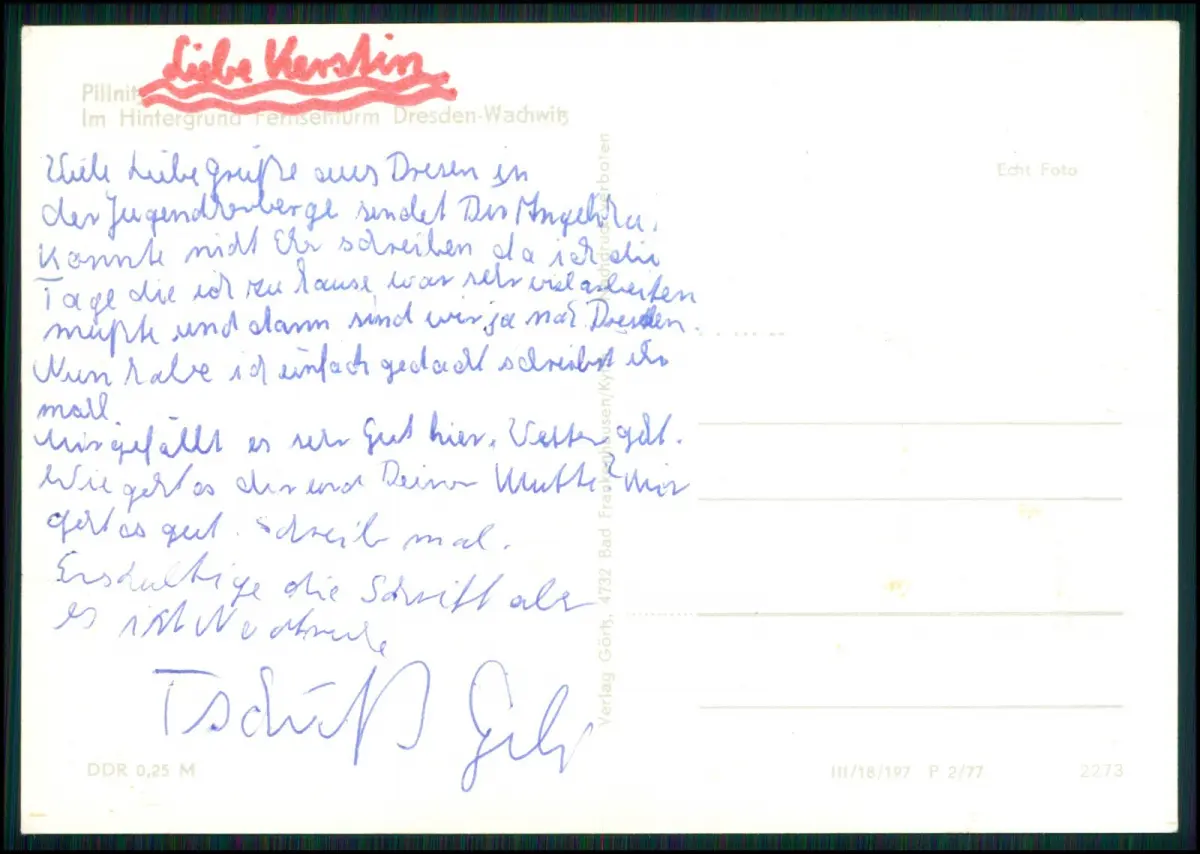 Liebe Kerstin
Pillnitz
Im Hintergrund Fernsehturm Dresden-Wachwitz
Echt Foto
Viele Liebe Grüße aus Dresen in
der Jugendherberge sendet Dir
Konnte nicht Ehr schreiben da ich die
Tage die ich zu hause war sehr viel arbeiten
mußte und dann sind wir ja nach Dresden.
Nun habe ich einfach gedacht schreibst ihr
mall.
Mir gefällt es sehr Gut hier. Wetter geht.
Wie geht es dir und Deiner Mutti? Mir
geht es gut. Schreib mal.
Enschultige die Schrift aber
es ist
Tschüß
Verlag Görtz, 4732 Bad Frankenhausen/Kyffh. Nachdruck verboten
DDR 0,25 M
III/18/197 P 2/77
2273